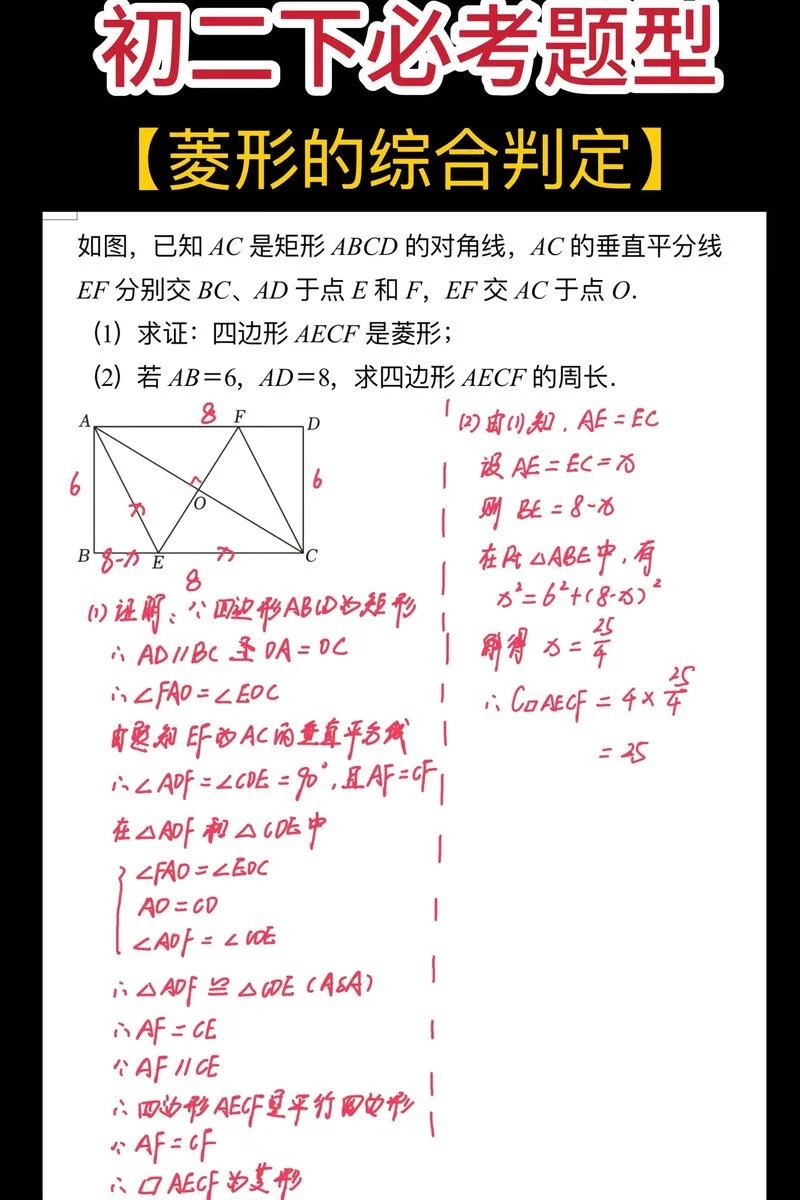 初二下必考题型
【菱形的综合判定】
如图，已知 AC 是矩形 ABCD 的对角线，AC 的垂直平分线
EF 分别交 BC、AD 于点 E 和 F，EF 交 AC 于点 O．
（1）求证：四边形 AECF 是菱形；
（2）若 AB＝6，AD＝8，求四边形 AECF 的周长．
A 8 F D
6 6
O
x
B 8-x E x C
8
(1)证明：∵四边形ABCD为矩形
∴AD∥BC 且 OA=OC
∴∠FAO=∠EOC
由题知 EF为AC的垂直平分线
∴∠AOF=∠COE=90°，且AF=CF
在△AOF和△COE中
∠FAO=∠EOC
AO=CO
∠AOF=∠COE
∴△AOF≌△COE(ASA)
∴AF=CE
∵AF∥CE
∴四边形AECF是平行四边形
∵AF=CF
∴▱AECF为菱形
(2)由(1)知，AE=EC
设AE=EC=x
则 BE=8-x
在Rt△ABE中，有
x²=6²+(8-x)²
解得 x=25/4
∴C▱AECF=4×25/4
=25